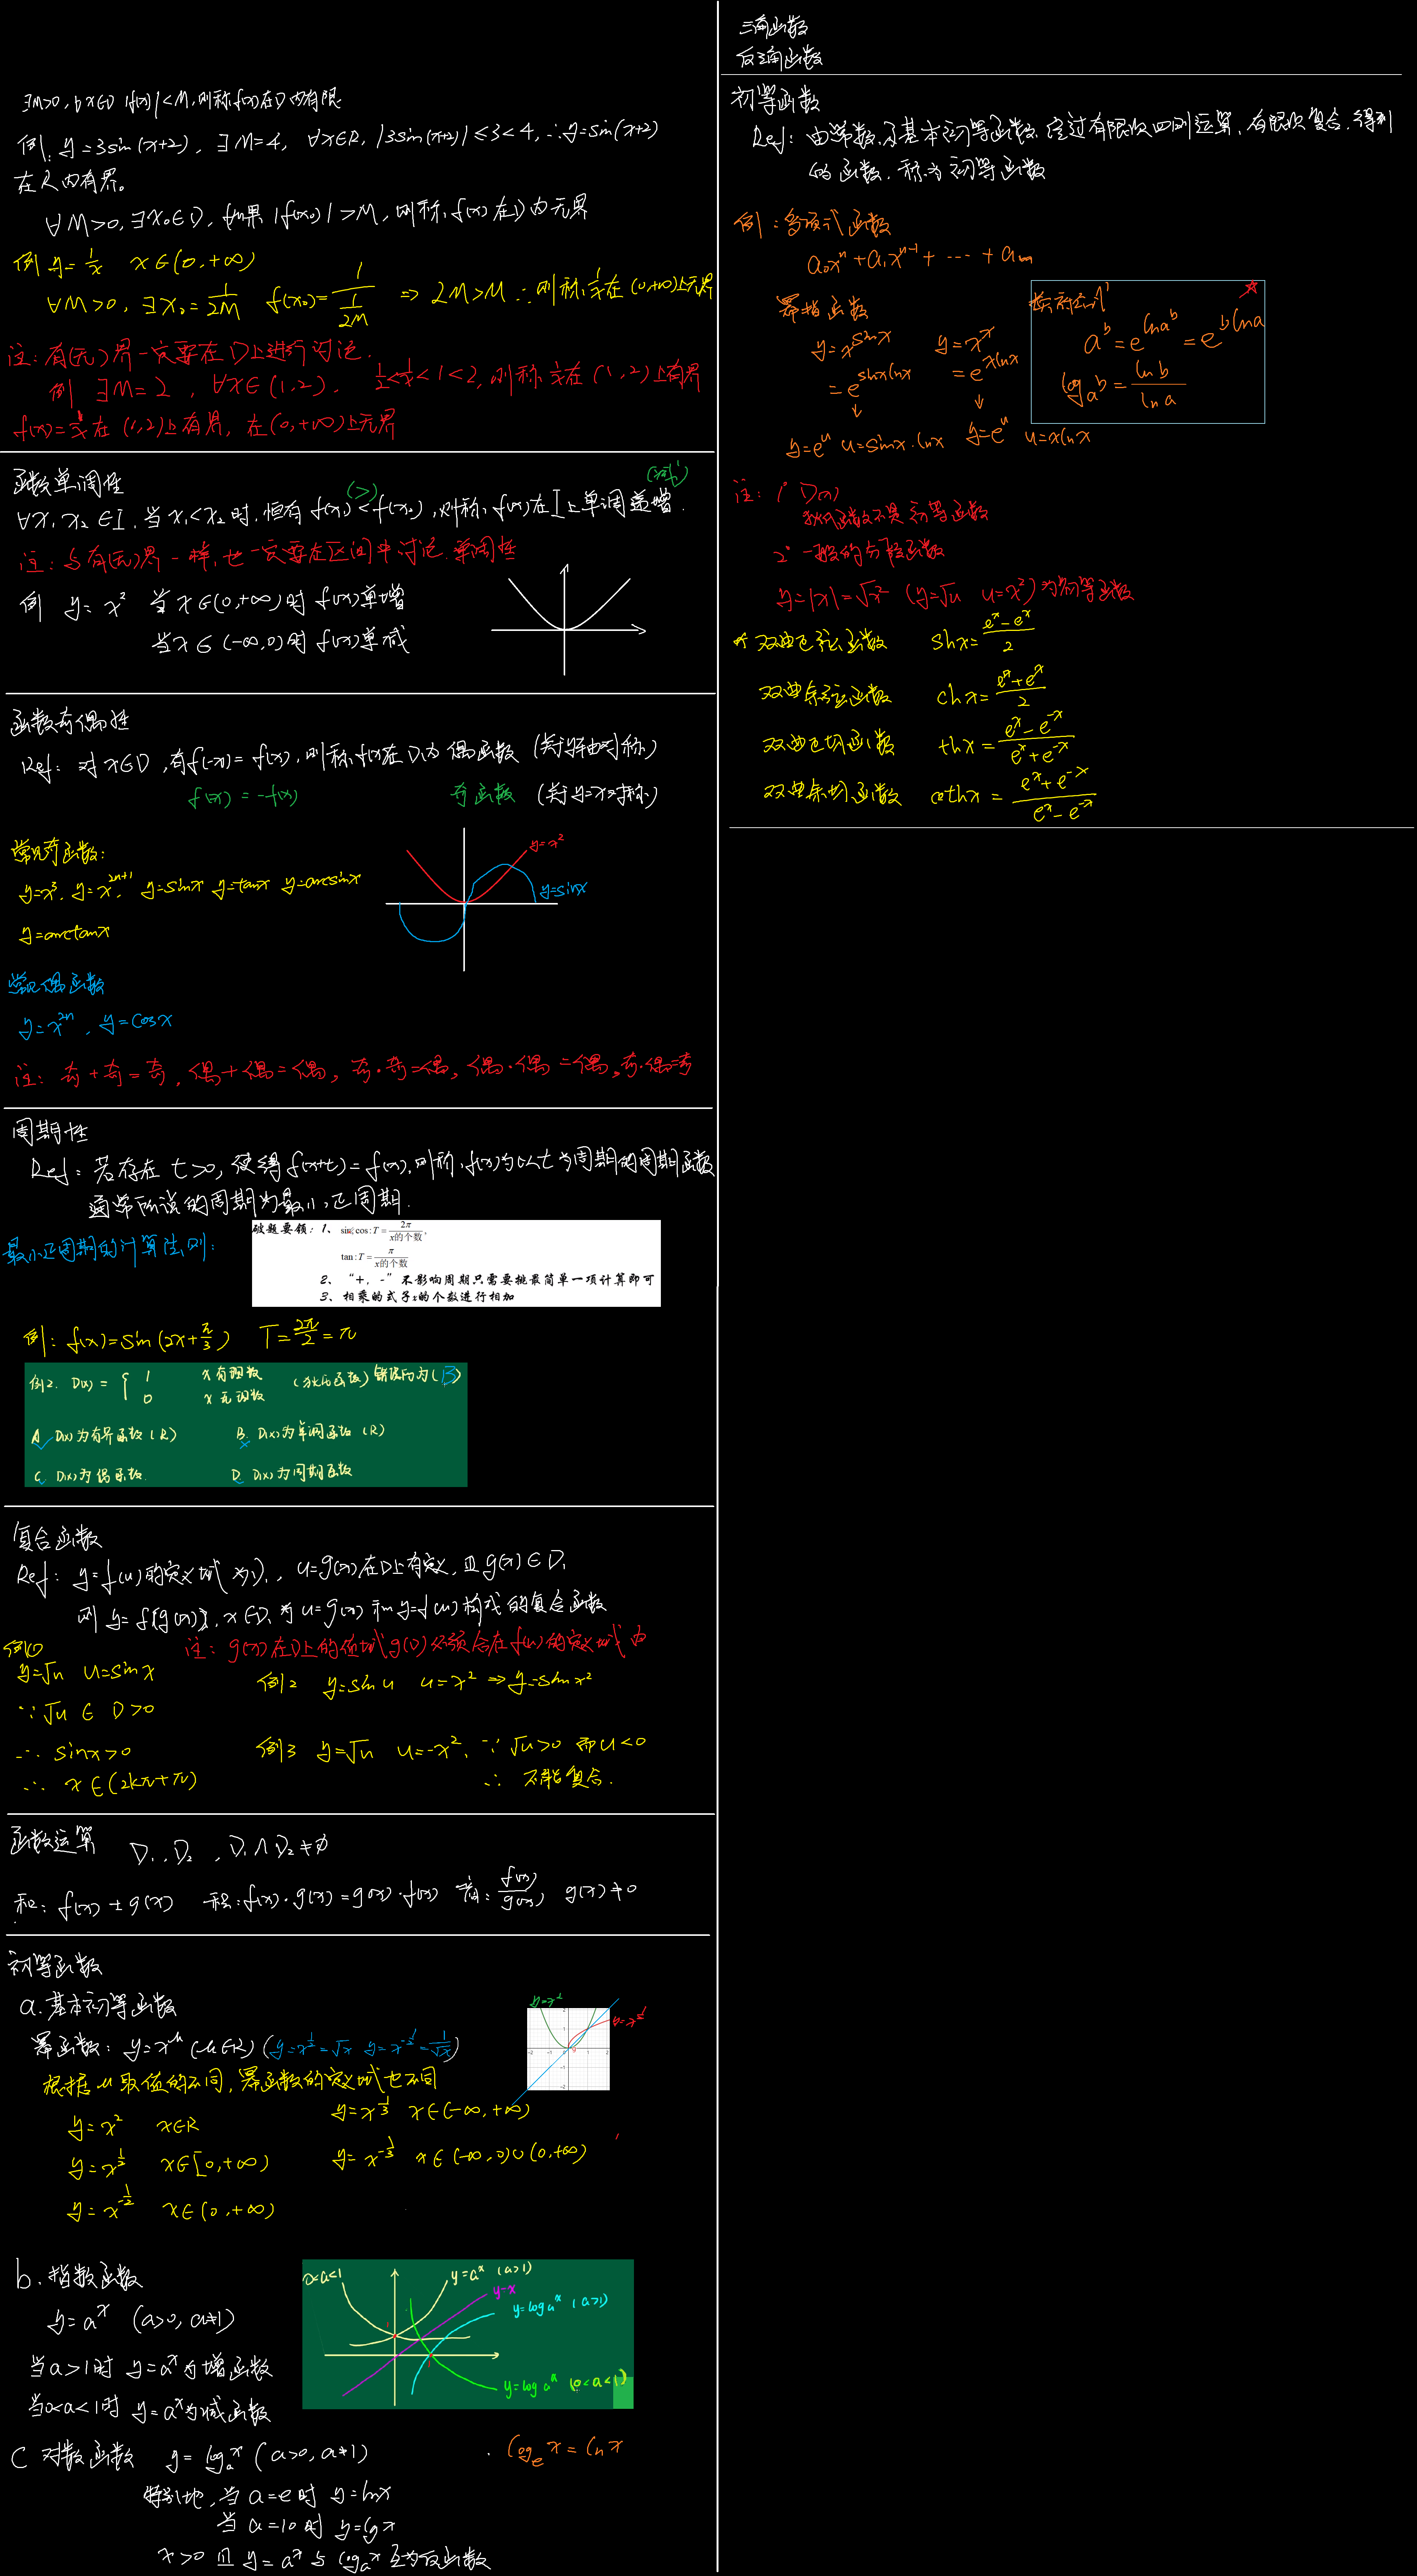 ∃M>0, ∀x∈D |f(x)|<M, 则称f(x)在D内有限
例: y=3sin(x+2), ∃M=4, ∀x∈R, |3sin(x+2)|≤3<4, ∴y=sin(x+2)
在R内有界。
∀M>0, ∃x₀∈D, 如果|f(x₀)|>M, 则称f(x)在D内无界
例 y=1/x x∈(0,+∞)
∀M>0, ∃x₀=1/2M f(x₀)=1/(1/2M) ⇒ 2M>M ∴则称1/x在(0,+∞)上无界
注: 有(无)界一定要在D上进行讨论.
例 ∃M=2, ∀x∈(1,2), 1/2<1/x<1<2, 则称1/x在(1,2)上有界
f(x)=1/x在(1,2)上有界, 在(0,+∞)上无界
函数单调性
(>) (减)
∀x₁x₂∈I, 当x₁<x₂时, 恒有f(x₁)<f(x₂), 则称f(x)在I上单调递增.
注: 与有(无)界一样, 也一定要在区间中讨论单调性
例 y=x² 当x∈(0,+∞)时 f(x)单增
当x∈(-∞,0)时 f(x)单减
函数奇偶性
Ref: 对x∈D, 有f(-x)=f(x), 则称f(x)在D内为偶函数 (关于y轴对称)
f(x)=-f(x) 奇函数 (关于y=x对称)
常见奇函数:
y=x³, y=x²ⁿ⁺¹, y=sinx y=tanx y=arcsinx
y=arctanx
y=x²
y=sinx
常见偶函数
y=x²ⁿ, y=cosx
注: 奇+奇=奇, 偶+偶=偶, 奇·奇=偶, 偶·偶=偶, 奇·偶=奇
周期性
Ref: 若存在t>0, 使得f(x+t)=f(x), 则称f(x)为以t为周期的周期函数
通常所说的周期为最小正周期.
最小正周期的计算法则:
破题要领: 1、 sin;cos:T=2π/x的个数,
tan:T=π/x的个数
2、 “+, -”不影响周期只需要挑最简单一项计算即可
3、 相乘的式子x的个数进行相加
例: f(x)=sin(2x+π/3) T=2π/2=π
例2. D(x)={ 1 x有理数 (狄氏函数) 错误的为(B)
0 x无理数
A D(x)为有界函数(R) B. D(x)为单调函数(R)
C D(x)为偶函数. D. D(x)为周期函数
复合函数
Ref: y=f(u)的定义域为D₁, u=g(x)在D上有定义, 且g(x)∈D₁
则 y=f[g(x)], x∈D, 为u=g(x)和y=f(u)构成的复合函数
注: g(x)在D上的值域g(D)必须含在f(u)的定义域内
例①
y=√u u=sinx
∵√u∈D>0
∴ sinx>0
∴ x∈(2kπ+π)
例2 y=sinu u=x² ⇒ y=sinx²
例3 y=√u u=-x², ∵√u>0 而u<0
∴ 不能复合.
函数运算 D₁, D₂, D₁∩D₂≠∅
和: f(x)±g(x) 积: f(x)·g(x)=g(x)·f(x) 商: f(x)/g(x) g(x)≠0
初等函数
a. 基本初等函数
幂函数: y=x^μ (μ∈R) (y=x^(1/2)=√x y=x^(-1/2)=1/√x)
根据μ取值的不同, 幂函数的定义域也不同
y=x² x∈R
y=x^(1/2) x∈[0,+∞)
y=x^(-1/2) x∈(0,+∞)
y=x^(1/3) x∈(-∞,+∞)
y=x^(-1/3) x∈(-∞,0)∪(0,+∞)
y=x²
y=x^(1/2)
b. 指数函数
y=aˣ (a>0, a≠1)
当a>1时 y=aˣ为增函数
当0<a<1时 y=aˣ为减函数
0<a<1
y=aˣ (a>1)
y=x
y=logaˣ (a>1)
y=logaˣ (0<a<1)
c 对数函数 y=logₐx (a>0, a≠1)
logₑx=lnx
特别地, 当a=e时 y=lnx
当a=10时 y=lgx
x>0 且 y=aˣ与logₐx互为反函数
三角函数
反三角函数
初等函数
Ref: 由常数及基本初等函数, 经过有限次四则运算, 有限次复合, 得到
的函数, 称为初等函数
例: 多项式函数
a₀xⁿ+a₁xⁿ⁻¹+⋯+aₙ
幂指函数
y=x^sinx y=xˣ
=e^sinxlnx =e^xlnx
↓ ↓
y=eᵘ u=sinx·lnx y=eᵘ u=xlnx
aᵇ=e^lnaᵇ=e^blna
logₐb=lnb/lna
注: 1° D(x)
狄氏函数不是初等函数
2° 一般的分段函数
y=|x|=√x² (y=√u u=x²)为初等函数
双曲正弦函数 shx=(eˣ-eˣ)/2
双曲余弦函数 chx=(eˣ+eˣ)/2
双曲正切函数 thx=(eˣ-e⁻ˣ)/(eˣ+e⁻ˣ)
双曲余切函数 cothx=(eˣ+e⁻ˣ)/(eˣ-e⁻ˣ)